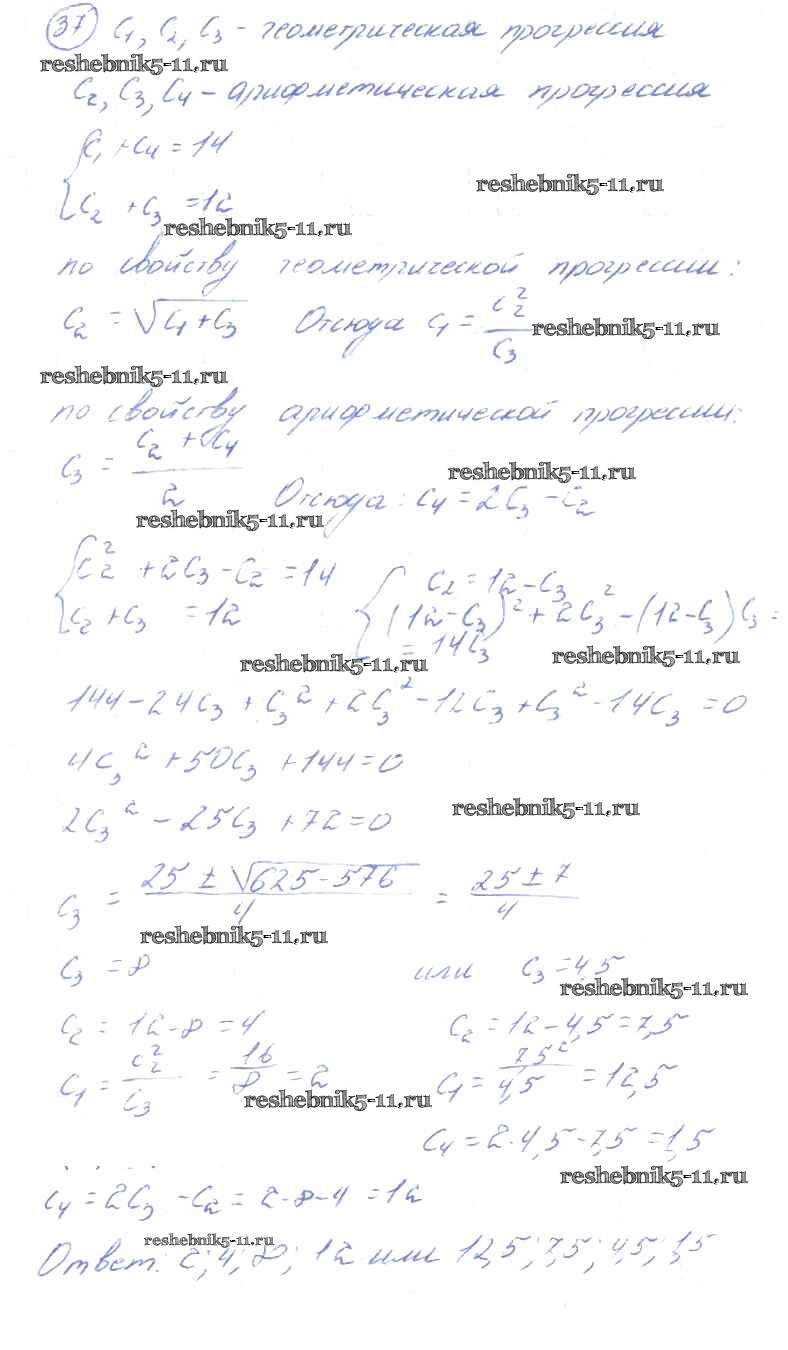 37 C₁, C₂, C₃ - геометрическая прогрессия
reshebnik5-11.ru
C₂, C₃, C₄ - арифметическая прогрессия
{ C₁ + C₄ = 14
reshebnik5-11.ru
C₂ + C₃ = 12
reshebnik5-11.ru
по свойству геометрической прогрессии:
C₂ = √(C₁ + C₃) Отсюда C₁ = C₂²/C₃
reshebnik5-11.ru
reshebnik5-11.ru
по свойству арифметической прогрессии:
C₃ = (C₂ + C₄)/2 Отсюда: C₄ = 2C₃ - C₂
reshebnik5-11.ru
reshebnik5-11.ru
{ C₂² + 2C₃ - C₂ = 14 { C₂ = 12 - C₃
C₂ + C₃ = 12 (12 - C₃)² + 2C₃² - (12 - C₃)C₃ =
= 14C₃
reshebnik5-11.ru reshebnik5-11.ru
144 - 24C₃ + C₃² + 2C₃² - 12C₃ + C₃² - 14C₃ = 0
4C₃² + 50C₃ + 144 = 0
reshebnik5-11.ru
2C₃² - 25C₃ + 72 = 0
C₃ = (25 ± √(625 - 576))/4 = (25 ± 7)/4
reshebnik5-11.ru
C₃ = 8 или C₃ = 4,5
reshebnik5-11.ru
C₂ = 12 - 8 = 4 C₂ = 12 - 4,5 = 7,5
C₁ = C₂²/C₃ = 16/8 = 2 C₁ = 7,5²/4,5 = 12,5
reshebnik5-11.ru
C₄ = 2·4,5 - 7,5 = 1,5
reshebnik5-11.ru
C₄ = 2C₃ - C₂ = 2·8 - 4 = 12
reshebnik5-11.ru
Ответ: 2; 4; 8; 12 или 12,5; 7,5; 4,5; 1,5